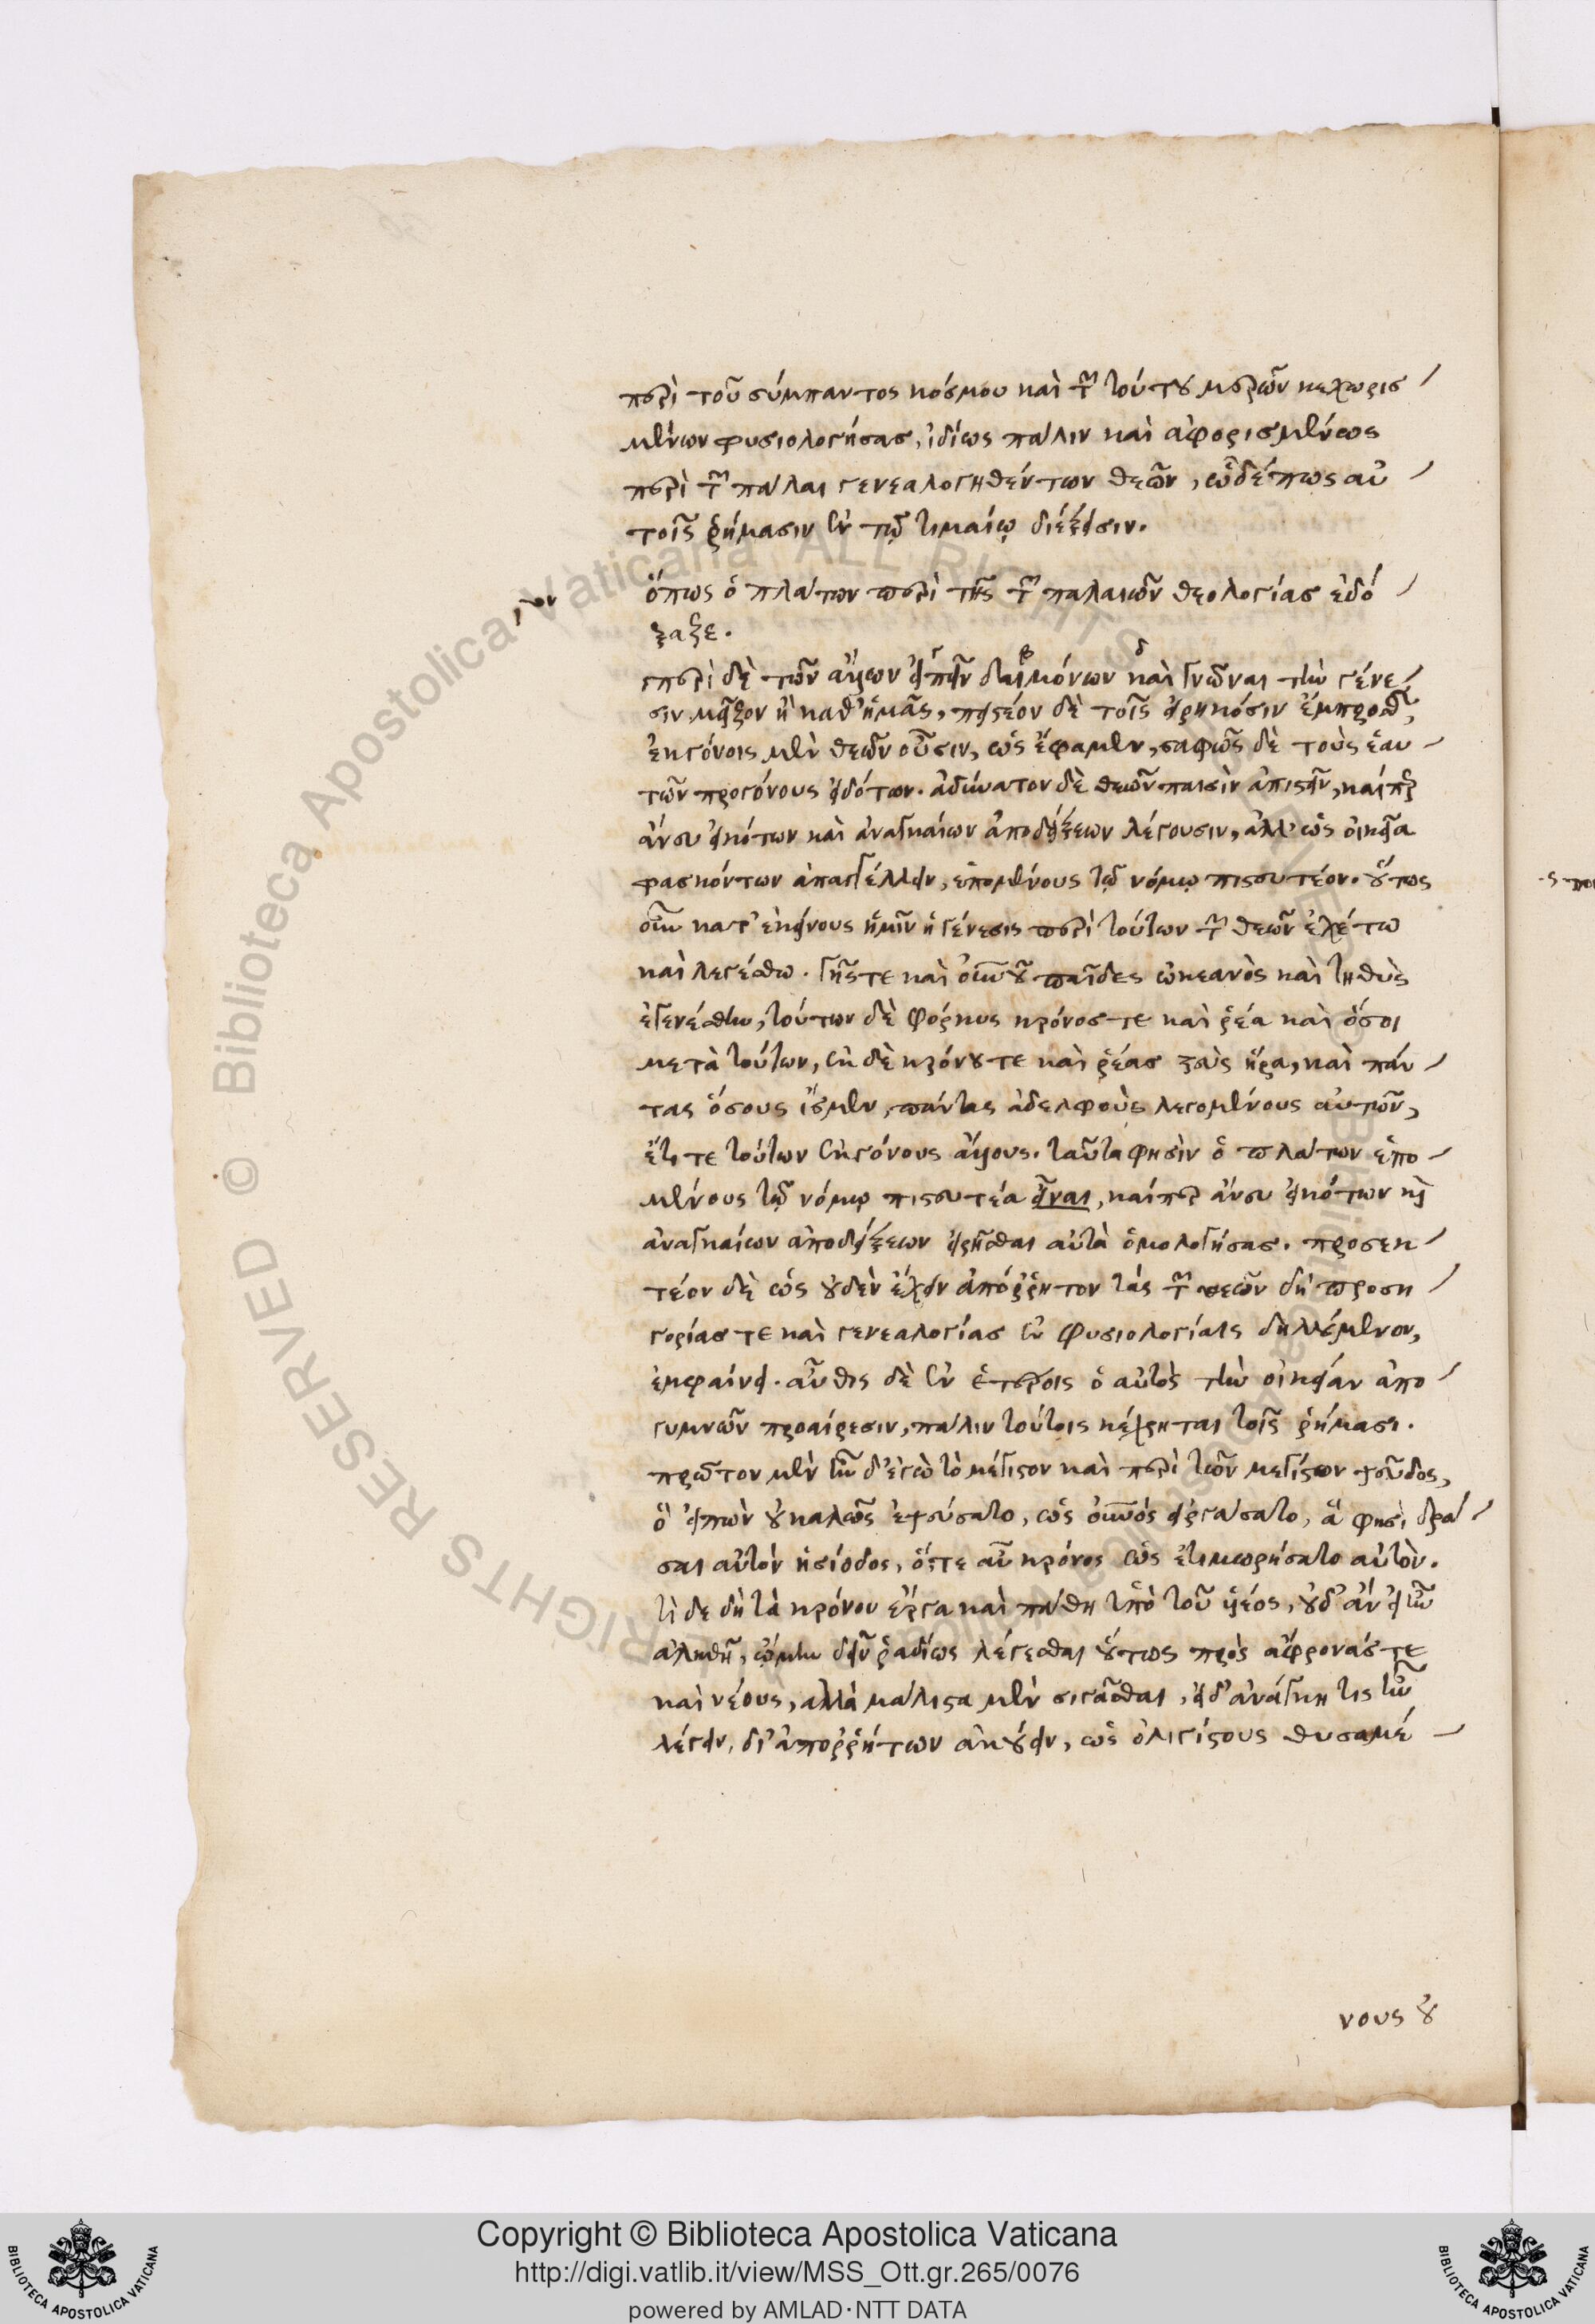 περὶ τοῦ σύμπαντος κόσμου καὶ τῶν τούτου μερῶν κεχωρισ
μένων φυσιολογήσας, ἰδίως πάλιν καὶ ἀφορισμένως
περὶ τῶν πάλαι γενεαλογηθέντων θεῶν, ὧδέ πως αὐ
τοῖς ῥήμασιν ἐν τῷ τιμαίῳ διέξεισιν.
ὅπως ὁ πλάτων περὶ τῆς τῶν παλαιῶν θεολογίας ἐδό
ξαζε.
περὶ δὲ τῶν ἄλλων εἰπεῖν δαιμόνων καὶ γνῶναι τὴν γένε
σιν μεῖζον ἢ καθ' ἡμᾶς, πειστέον δὲ τοῖς εἰρηκόσιν ἔμπροσθεν,
ἐκγόνοις μὲν θεῶν οὖσιν, ὡς ἔφαμεν, σαφῶς δὲ τοὺς ἑαυ
τῶν προγόνους εἰδότων. ἀδύνατον δὲ θεῶν παισὶν ἀπιστεῖν, καίπερ
ἄνευ εἰκότων καὶ ἀναγκαίων ἀποδείξεων λέγουσιν, ἀλλ' ὡς οἰκεῖα
φασκόντων ἀπαγγέλλειν, ἑπομένους τῷ νόμῳ πιστευτέον. οὕτως
οὖν κατ' ἐκείνους ἡμῖν ἡ γένεσις περὶ τούτων τῶν θεῶν ἐχέτω
καὶ λεγέσθω. γῆς τε καὶ οὐνοῦ παῖδες ὠκεανὸς καὶ τηθὺς
ἐγενέσθην, τούτων δὲ φόρκυς κρόνος τε καὶ ῥέα καὶ ὅσοι
μετὰ τούτων, ἐκ δὲ κρόνου τε καὶ ῥέας ζεὺς ἥρα, καὶ πάν
τας ὅσους ἴσμεν, πάντας ἀδελφοὺς λεγομένους αὐτῶν,
ἔτι τε τούτων ἐκγόνους ἄλλους. ταῦτα φησὶν ὁ πλάτων ἑπο
μένους τῷ νόμῳ πιστευτέα εἶναι, καίπερ ἄνευ εἰκότων καὶ
ἀναγκαίων ἀποδείξεων εἰρῆσθαι αὐτὰ ὁμολογήσας. προσεκ
τέον δὲ ὡς οὐδὲν ἔχειν ἀπόρρητον τὰς τῶν θεῶν δὴ προση
γορίας τε καὶ γενεαλογίας ἐν φυσιολογίαις δηλούμενον,
ἐμφαίνει. αὖθις δὲ ἐν ἑτέροις ὁ αὐτὸς τὴν οἰκείαν ἀπο
γυμνῶν προαίρεσιν, πάλιν τούτοις κέχρηται τοῖς ῥήμασι.
πρῶτον μὲν ἦν δ' ἐγὼ τὸ μέγιστον καὶ περὶ τῶν μεγίστων ψεῦδος,
ὃ εἰπὼν οὐ καλῶς ἐψεύσατο, ὡς οὐνός εἰργάσατο, ἅ φησι δρᾶ
σαι αὐτὸν ἡσίοδος, ὅ,τε αὖ κρόνος ὡς ἐτιμωρήσατο αὐτόν.
τὰ δὲ δὴ τὰ κρόνου ἔργα καὶ πάθη ὑπὸ τοῦ υἱέος, οὐδ' ἂν εἰ ἦν
ἀληθῆ, ᾤμην δεῖν ῥᾳδίως λέγεσθαι οὕτως πρὸς ἄφρονάς τε
καὶ νέους, ἀλλὰ μάλιστα μὲν σιγᾶσθαι, εἰ δ' ἀνάγκη τις ἦν
λέγειν, δι' ἀπορρήτων ἀκούειν, ὡς ὀλιγίστους θυσαμέ
νους οὐ
Copyright © Biblioteca Apostolica Vaticana
http://digi.vatlib.it/view/MSS_Ott.gr.265/0076
powered by AMLAD·NTT DATA
BIBLIOTECA APOSTOLICA VATICANA
BIBLIOTECA APOSTOLICA VATICANA